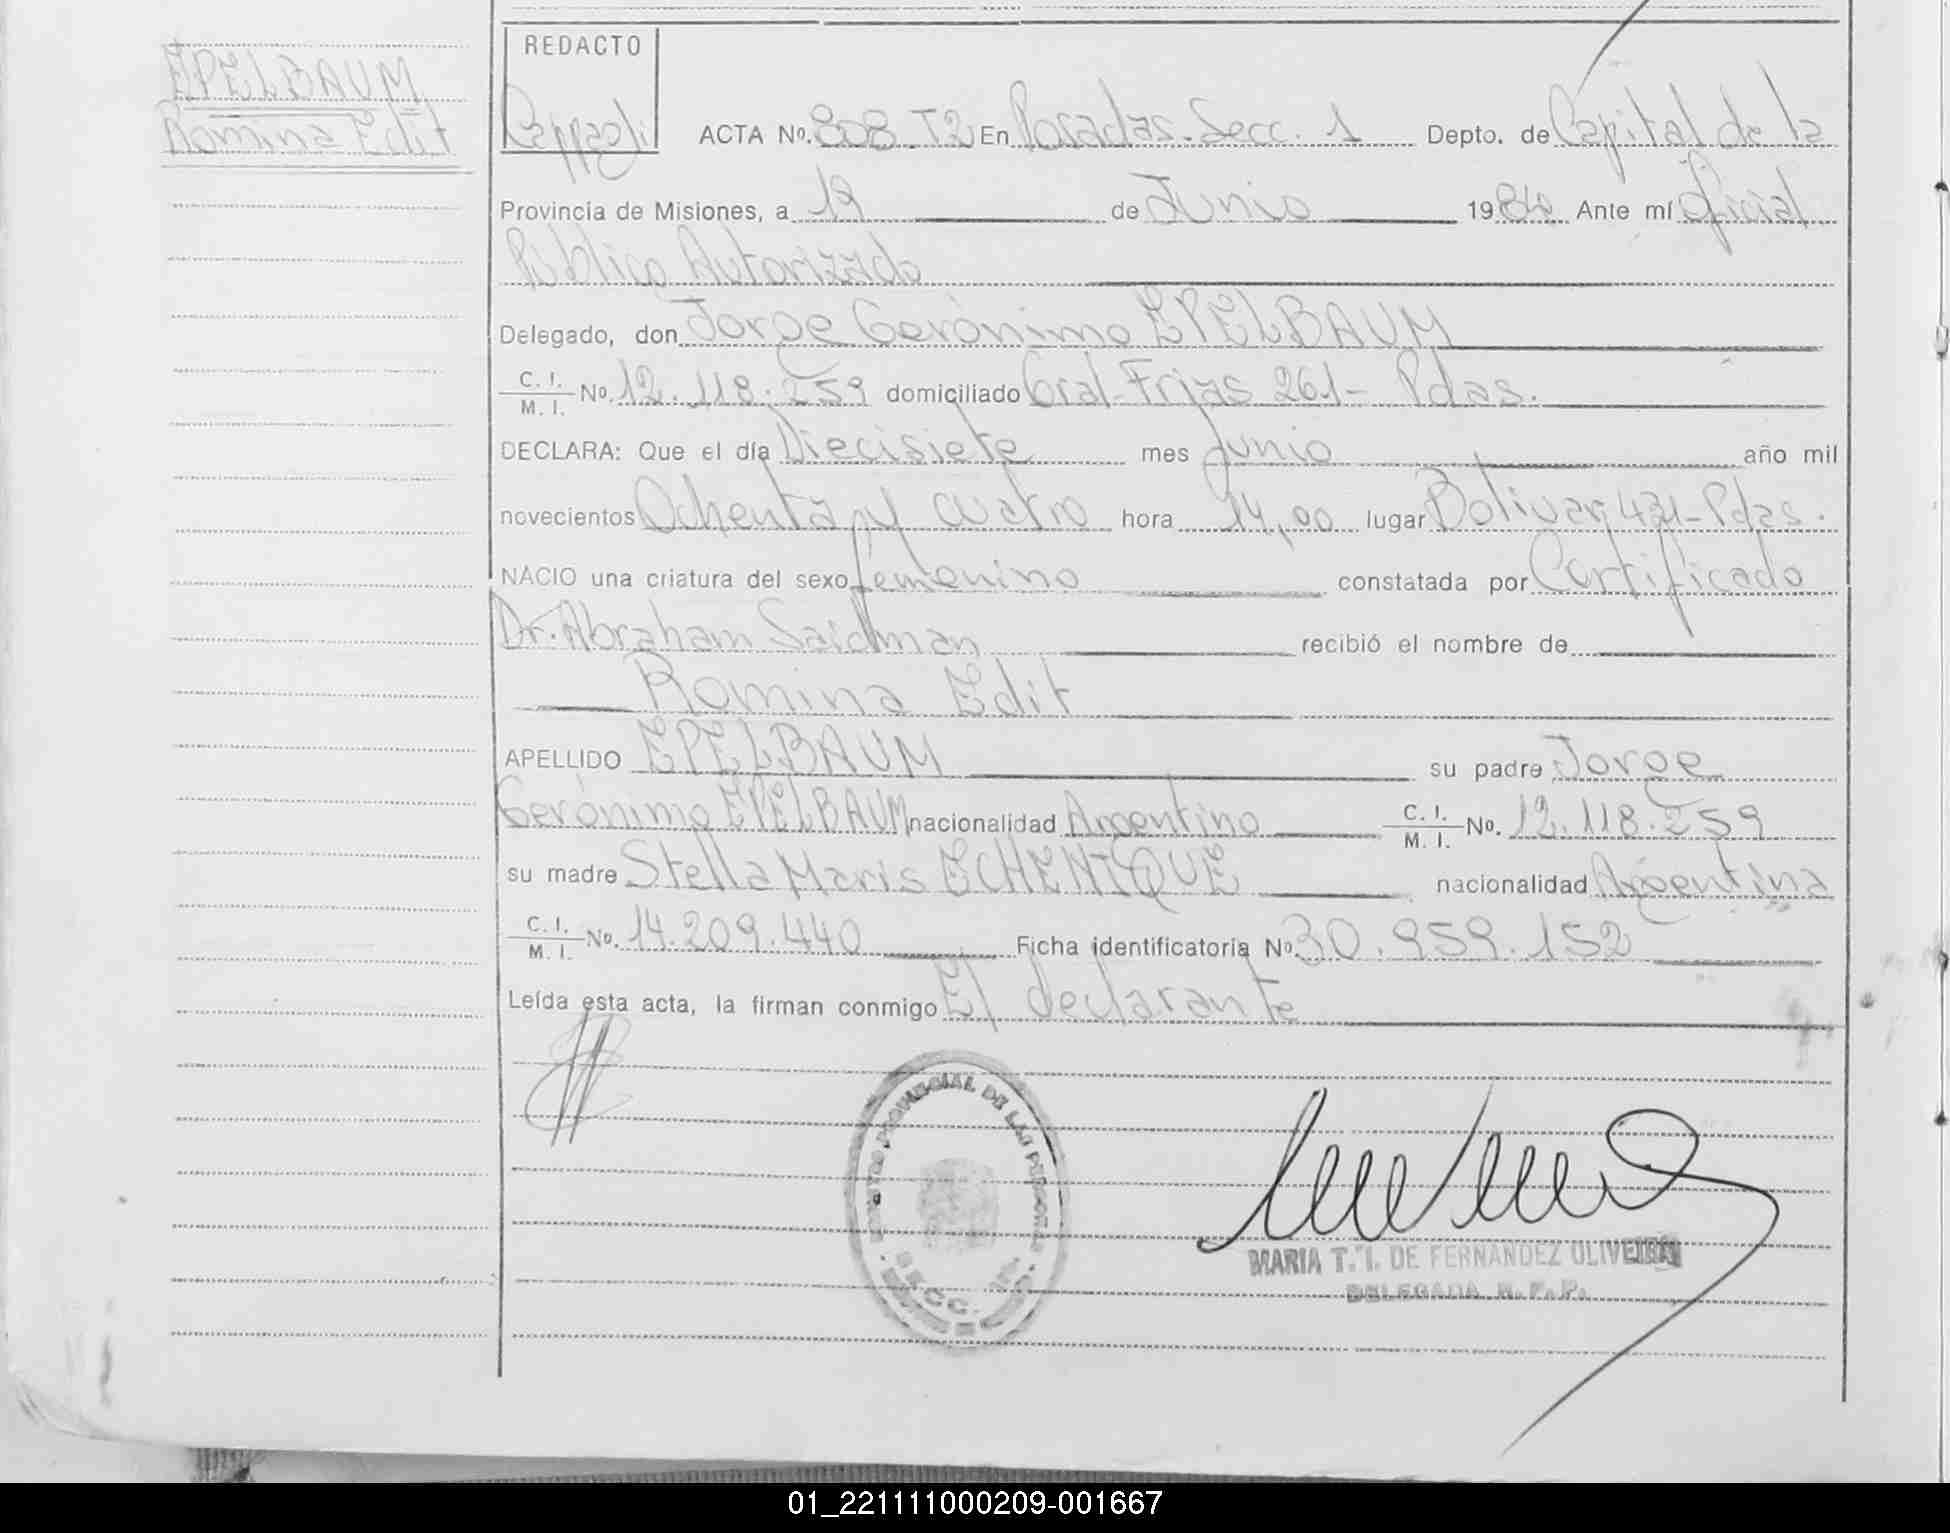 EPELBAUM
Romina Edit
REDACTO
ACTA Nº. 808. T2 En Posadas. Secc. 1 Depto. de Capital de la
Provincia de Misiones, a 19 de Junio 1984 Ante mí Oficial
Público Autorizado
Delegado, don Jorge Gerónimo EPELBAUM
C. I. / M. I. Nº. 12.118.259 domiciliado Gral-Frias 261- Pdas.
DECLARA: Que el día Diecisiete mes Junio año mil
novecientos Ochenta y cuatro hora 14,00 lugar Bolivar 421-Pdas.
NACIO una criatura del sexo femenino constatada por Certificado
Dr. Abraham Saidman recibió el nombre de
Romina Edit
APELLIDO EPELBAUM su padre Jorge
Gerónimo EPELBAUM nacionalidad Argentino C. I. / M. I. Nº. 12.118.259
su madre Stella Maris ECHENIQUE nacionalidad Argentina
C. I. / M. I. Nº. 14.209.440 Ficha identificatoria Nº 30.959.152
Leída esta acta, la firman conmigo El declarante
PROVINCIAL DE LAS PERSONAS
SECC.
MARIA T. I. DE FERNANDEZ OLIVEIRA
DELEGADA R. P. P.
01_221111000209-001667